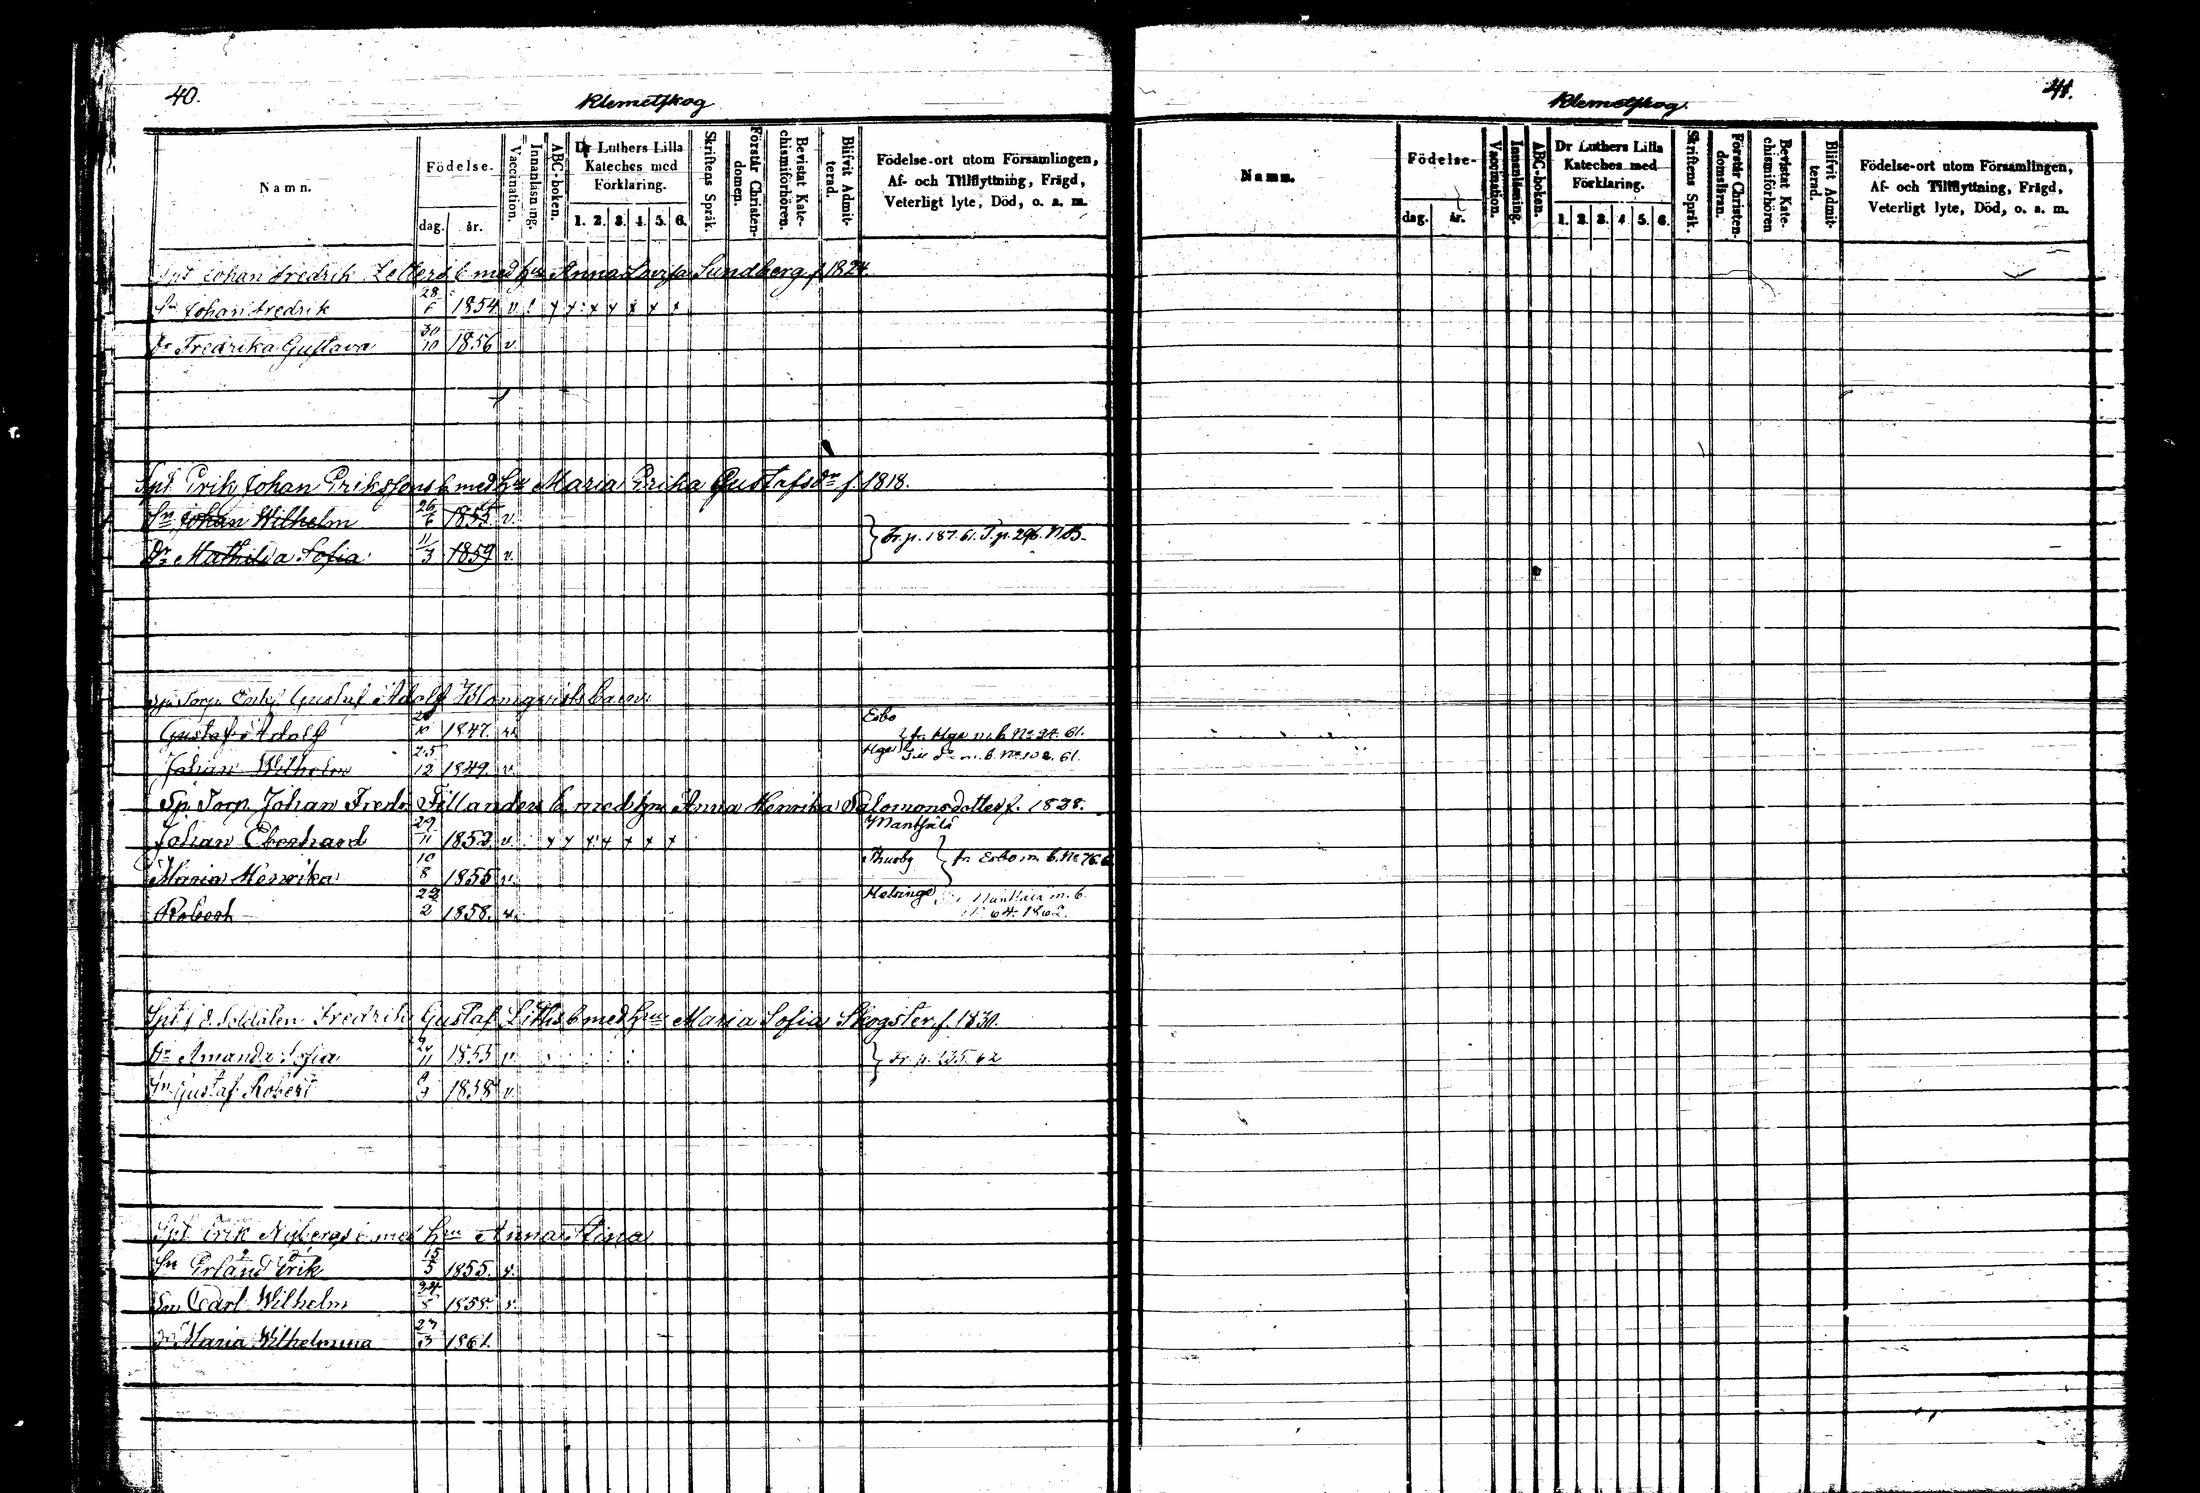 40.
Klemetskog
Namn.
Födelse.
dag.
år.
Vaccination.
Innanläsning.
ABC-boken.
Dr Luthers Lilla
Kateches med
Förklaring.
1. 2. 3. 4. 5. 6.
Skriftens Språk.
Förstår Christen-
domen.
Bevistat Kate-
chismiförhören.
Blifvit Admit-
terad.
Födelse-ort utom Församlingen,
Af- och Tillflyttning, Frägd,
Veterligt lyte, Död, o. a. m.
Johan Fredrik b med hu Anna Lovisa Sundberg f. 1824.
Sn Johan Fredrik 28 1854. v. x x x x x x x
Dr Fredrika Gustava 30/10 1856 v.
Spt Erik Johan Erikssons b med hu Maria Erika Gustafsdr f. 1818.
Sn Johan Wilhelm 26/6 1855 v.
Dr Mathilda Sofia 11/3 1859 v.
Fr. p. 187. 61. T. p. 296. NB.
Gustaf Adolf Blomqvists barn:
Gustaf Adolf 10 1847. Esbo
fr Hgs m. b. No 24. 61.
Johan Wilhelm 25/12 1849. v. Hgs
m. b. 61.
Sp. Torp. Johan Fredr b med hru Anna Henrika Salomonsdotter f. 1828.
Johan Eberhard 29/11 1852 v. x x x x x x x Mantsälä
Maria Henrika 10/8 1855 v. Thusby
fr Esbo m. b. No
Robert 22/2 1858. v. Helsinge
m. b.
64. 1862.
Spt f d Soldaten Fredrik Gustaf Liths b med hru Maria Sofia Skogster f. 1830.
Dr Amanda Sofia 11 1855 v.
Fr. p. 62
Sn Gustaf Robert 1858 v.
Spt Erik Nybergs b med hru Anna Stina
Sn Erland Erik 15/5 1855. v.
Sn Carl Wilhelm 24 1858. v.
Dr Maria Wilhelmina 27/3 1861.
41.
Klemetskog.
Namn.
Födelse-
dag.
år.
Vaccination.
Innanläsning.
ABC-boken.
Dr Luthers Lilla
Kateches med
Förklaring.
1. 2. 3. 4. 5. 6.
Skriftens Språk.
Förstår Christen-
domsläran.
Bevistat Kate-
chismiförhören
Blifvit Admit-
terad.
Födelse-ort utom Församlingen,
Af- och Tillflyttning, Frägd,
Veterligt lyte, Död, o. a. m.